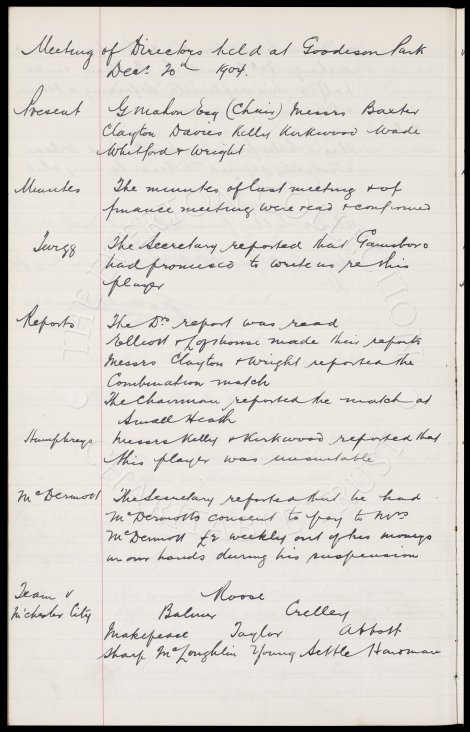 Meeting of Directors held at Goodison Park
Decr 20th 1904.
Present G Mahon Esq (Chair) Messrs Baxter
Clayton Davies Kelly Kirkwood Wade
Whitford & Wright
Minutes The minutes of last meeting & of
finance meeting were read & confirmed
The Secretary reported that Gainsboro
had promised to write us re this
player
Reports The Drs report was read
Elliott & Lofthouse made their reports
Messrs Clayton & Wright reported the
Combination match
The Chairman reported the match at
Small Heath
Humphreys Messrs Kelly & Kirkwood reported that
this player was unsuitable
McDermott The Secretary reported that he had
McDermotts consent to pay to Mrs
McDermott £2 weekly out of his moneys
in our hands during his suspension
Team v Roose
M'chester City Balmer Crelley
Makepeace Taylor Abbott
Sharp McLoughlin Young Settle Hardman